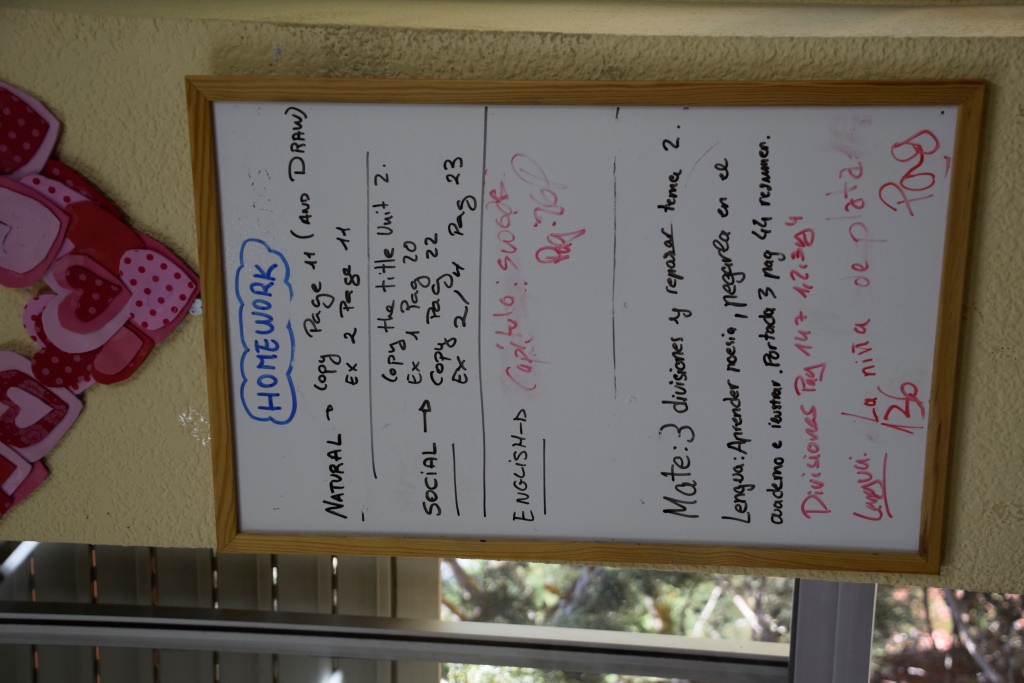 HOMEWORK
NATURAL → Copy Page 11 (AND DRAW)
Ex 2 Page 11
Copy the title Unit 2.
Ex 1 Pag 20
SOCIAL → Copy Pag 22
Ex 2, 4 Pag 23
ENGLISH → Capítulo:
Pag:
Mate: 3 divisiones y repasar tema 2.
Lengua: Aprender poesía, pegarla en el
cuaderno e ilustrar. Portada 3 pag 44 resumen.
Divisiones Pag 147 1,2,3
Lengua: La niña de plata
136 Pag